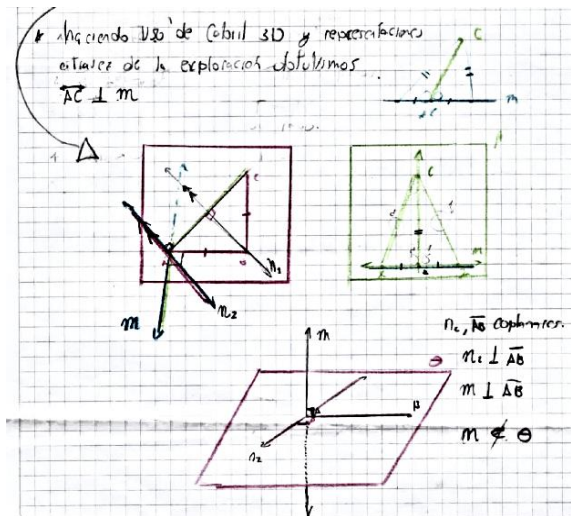 * haciendo Uso de Cabri 3D y representaciones
de la exploracion obtuvimos
AC ⊥ m
C
m
C
n₁
n₂
m
C
m
m
θ
B
n₂
n₂, AB coplanares.
n₂ ⊥ AB
m ⊥ AB
m ⊄ θ